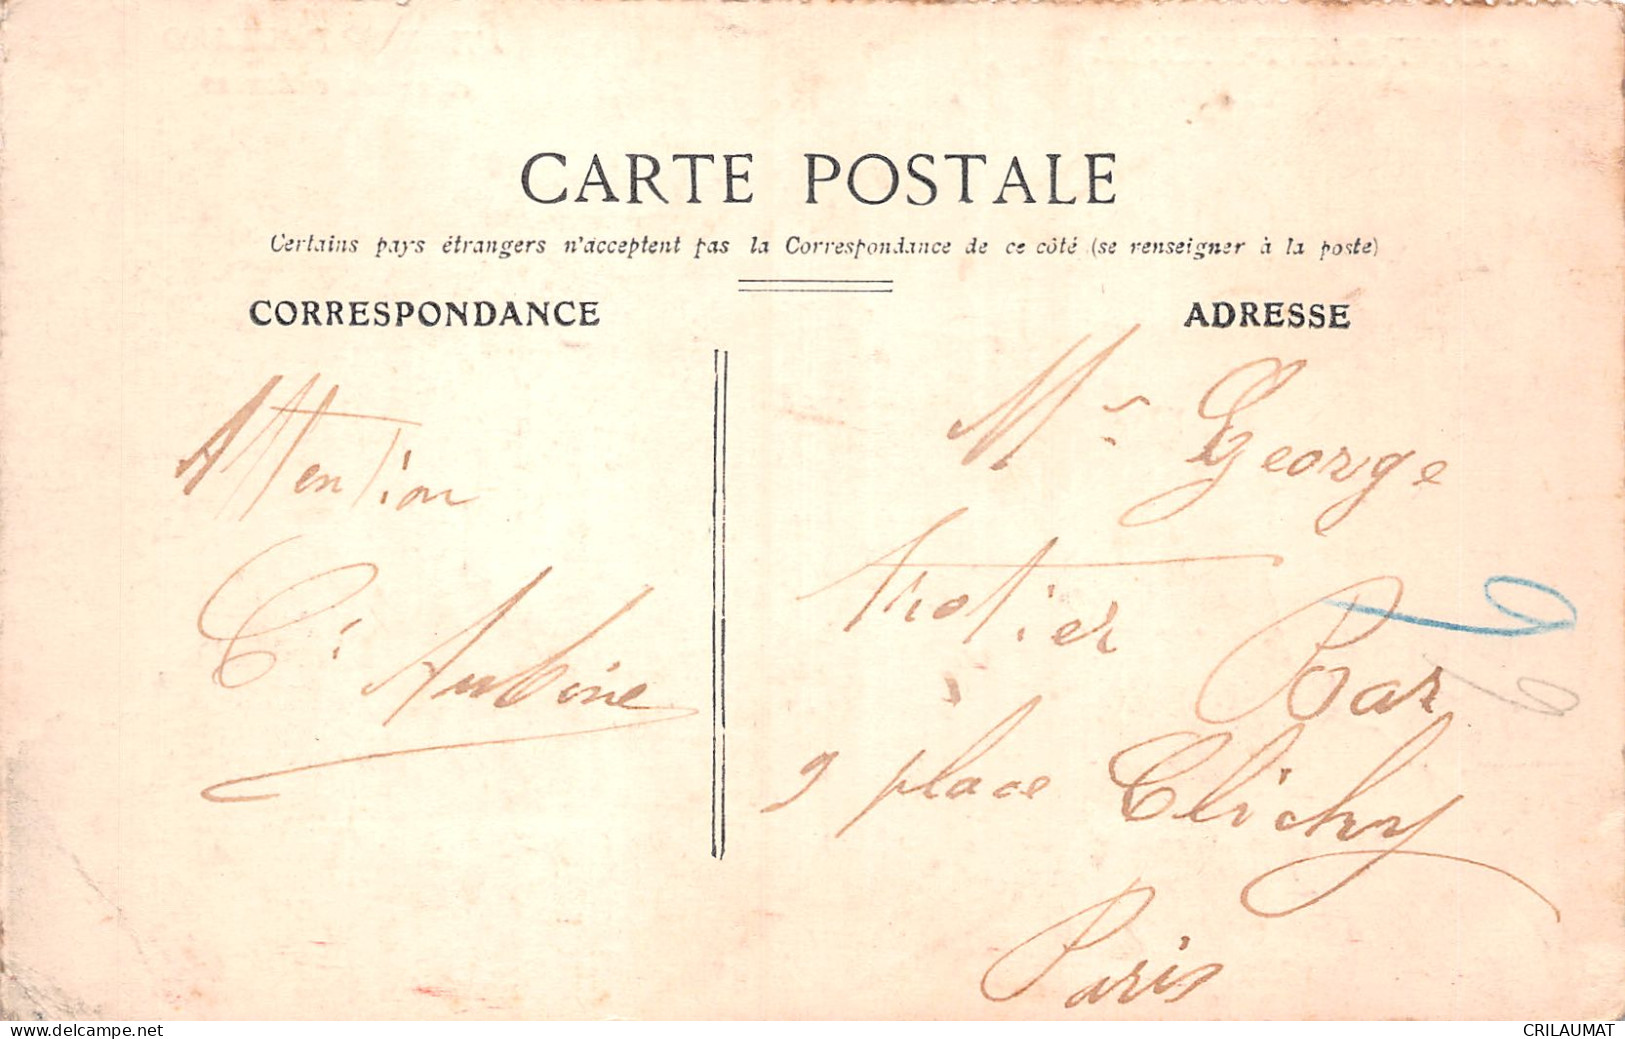 CARTE POSTALE
Certains pays étrangers n'acceptent pas la Correspondance de ce côté (se renseigner à la poste)
CORRESPONDANCE
Attention
C. Aubine
ADRESSE
Mr George
Trotier Bar
9 place Clichy
Paris
www.delcampe.net
CRILAUMAT